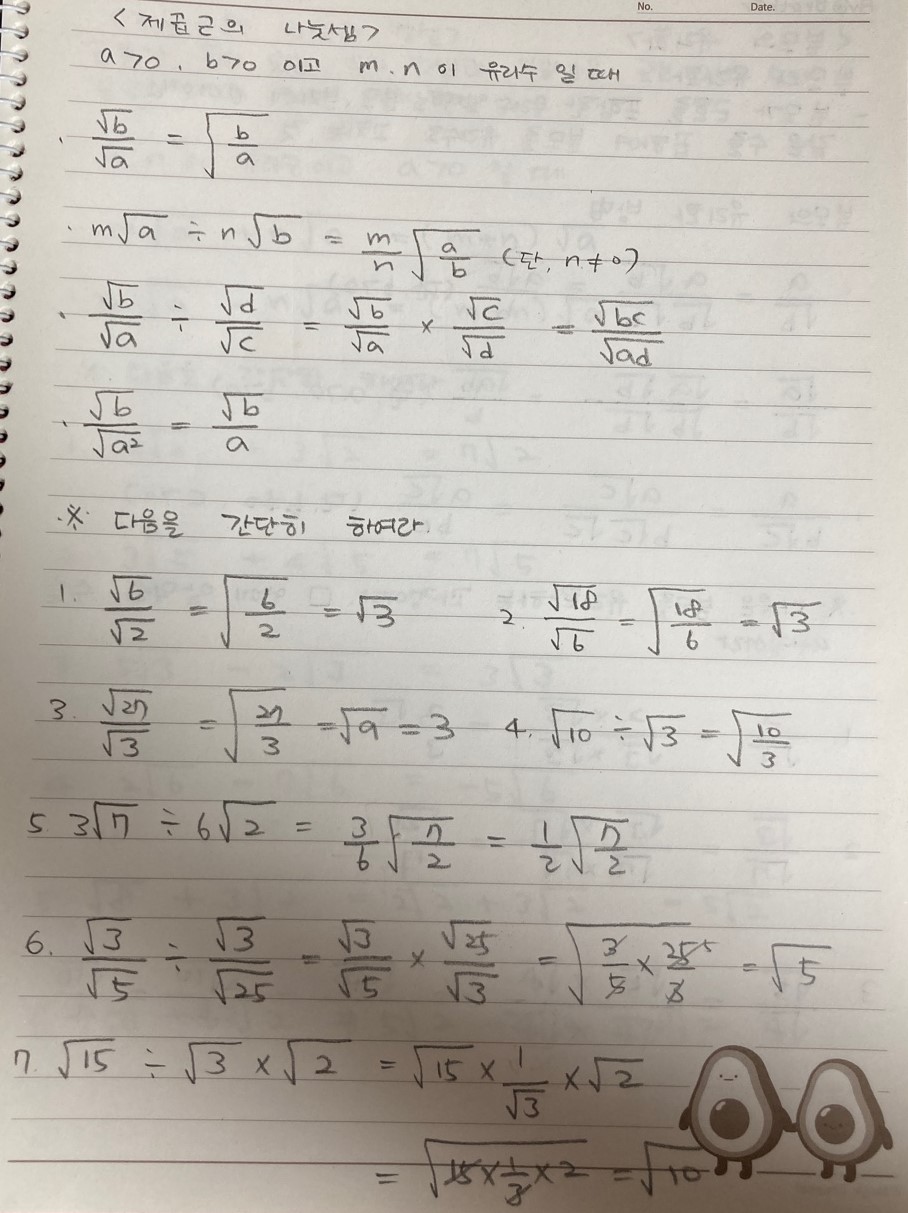 No. Date.
<제곱근의 나눗셈>
a>0, b>0 이고 m.n 이 유리수 일 때
· √b/√a = √(b/a)
· m√a ÷ n√b = m/n √(a/b) (단, n≠0)
· √b/√a ÷ √d/√c = √b/√a × √c/√d = √bc/√ad
· √b/√a² = √b/a
※ 다음을 간단히 하여라.
1. √6/√2 = √(6/2) = √3 2. √18/√6 = √(18/6) = √3
3. √27/√3 = √(27/3) = √9 = 3 4. √10 ÷ √3 = √(10/3)
5. 3√7 ÷ 6√2 = 3/6 √(7/2) = 1/2 √(7/2)
6. √3/√5 ÷ √3/√25 = √3/√5 × √25/√3 = √(3/5 × 25/3) 5 = √5
7. √15 ÷ √3 × √2 = √15 × 1/√3 × √2
= √(15 × 1/3 × 2) = √10